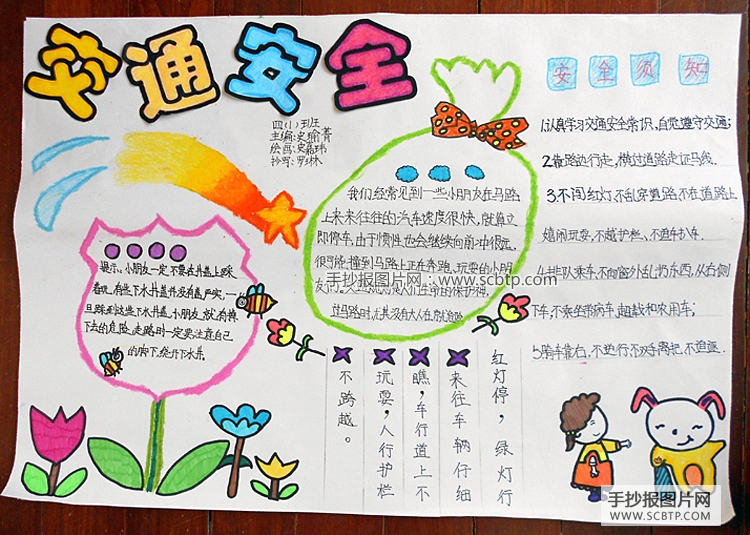 交通安全
四(1)班
主编:史瑜菁
绘画:史嘉玮
抄写:罗林
安全须知
1.认真学习交通安全常识,自觉遵守交通;
2.靠路边行走,横过道路走斑马线.
3.不闯红灯,不乱穿道路不在道路上
嬉闹玩耍,不越护栏、不追扒车.
4.排队乘车,不向窗外乱扔东西,从右侧
下车,不乘坐带病车,超载和农用车;
5.骑车靠右,不逆行不双手离把,不追逐.
我们经常见到一些小朋友在马路
上来来往往的汽车速度很快,就算立
即停车,由于惯性,也会继续向前冲很远.
很可能撞到马路上正在奔跑、玩耍的小朋
友
过马路时,尤其没有大人在
提示:小朋友一定不要在井盖上踩
着玩,有些下水井盖并没有盖严实,一
旦踩到这些下水井盖,小朋友就有掉
下去的危险,走路时一定要注意自己
的脚下,绕开下水井.
红灯停,绿灯行
来往车辆仔细
瞧,车行道上不
玩耍,人行护栏
不跨越。
手抄报图片网:www.scbtp.com
手抄报图片网
WWW.SCBTP.COM